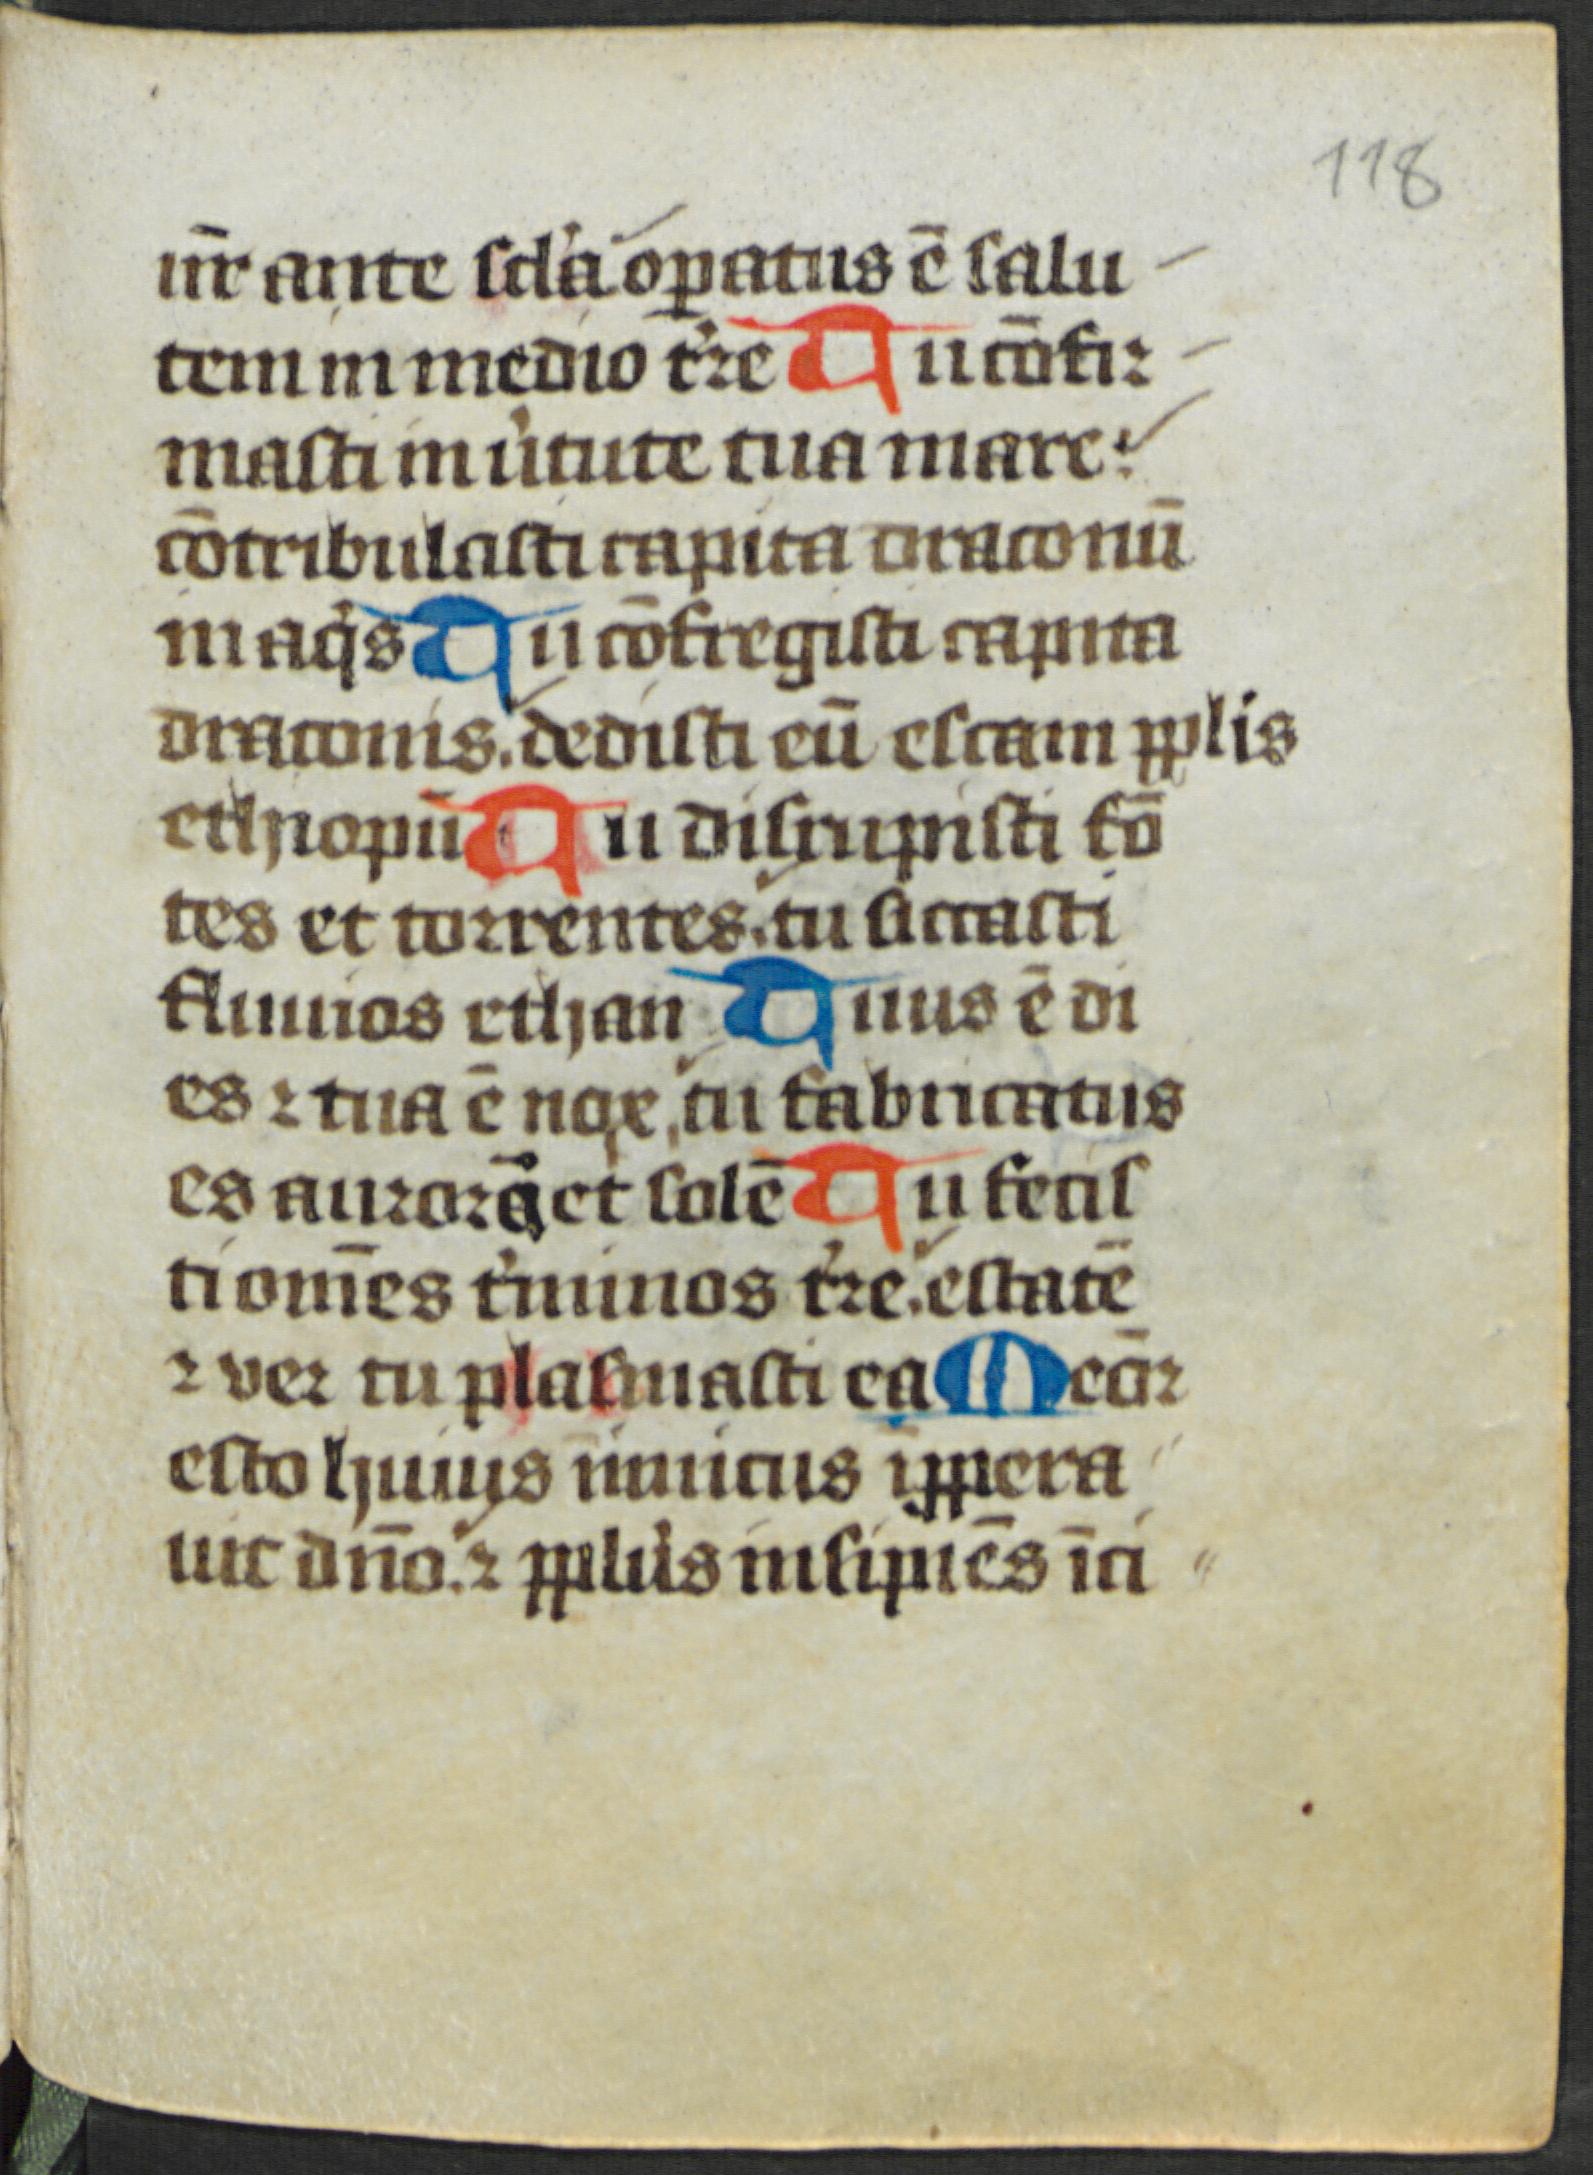 118
nr̄ ante scła oꝑatus ē salu
tem in medio tʼre Tu cōfir
masti in uʼtute tua mare:
cōtribulasti capita draconū
in aqⁱs Tu cōfregisti capita
draconis. dedisti eū escam pplis
ethiopū Tu disrupisti fō
tes et torrentes. tu siccasti
fluuios ethan Tuus ē di
es ⁊ tua ē nox, tu fabricatus
es aurorā et solē Tu fecis
ti om̄es tʼminos tʼre. estatē
⁊ ver tu plasmasti ea Meōr
esto huius īimicus īppera
uit dn̄o. ⁊ pplus insipiēs īci